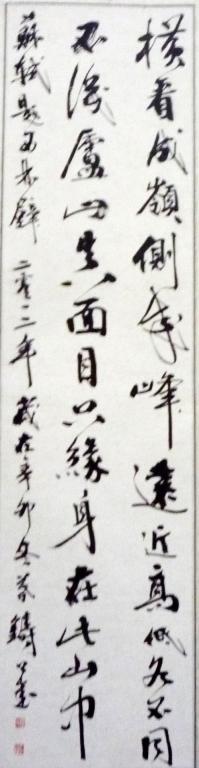 橫看成嶺側成峰遠近高低各不同
不識廬山真面目只緣身在此山中
蘇軾題西林壁二零一一年歲在辛卯冬